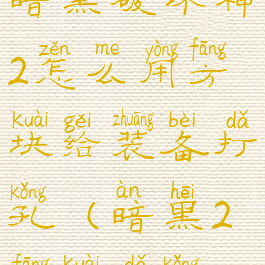 暗黑破坏神
zěn me yòng fāng
2怎么用方
kuài gěi zhuāng bèi dǎ
块给装备打
kǒng àn hēi
孔(暗黑2
fāng kuài dǎ kǒng